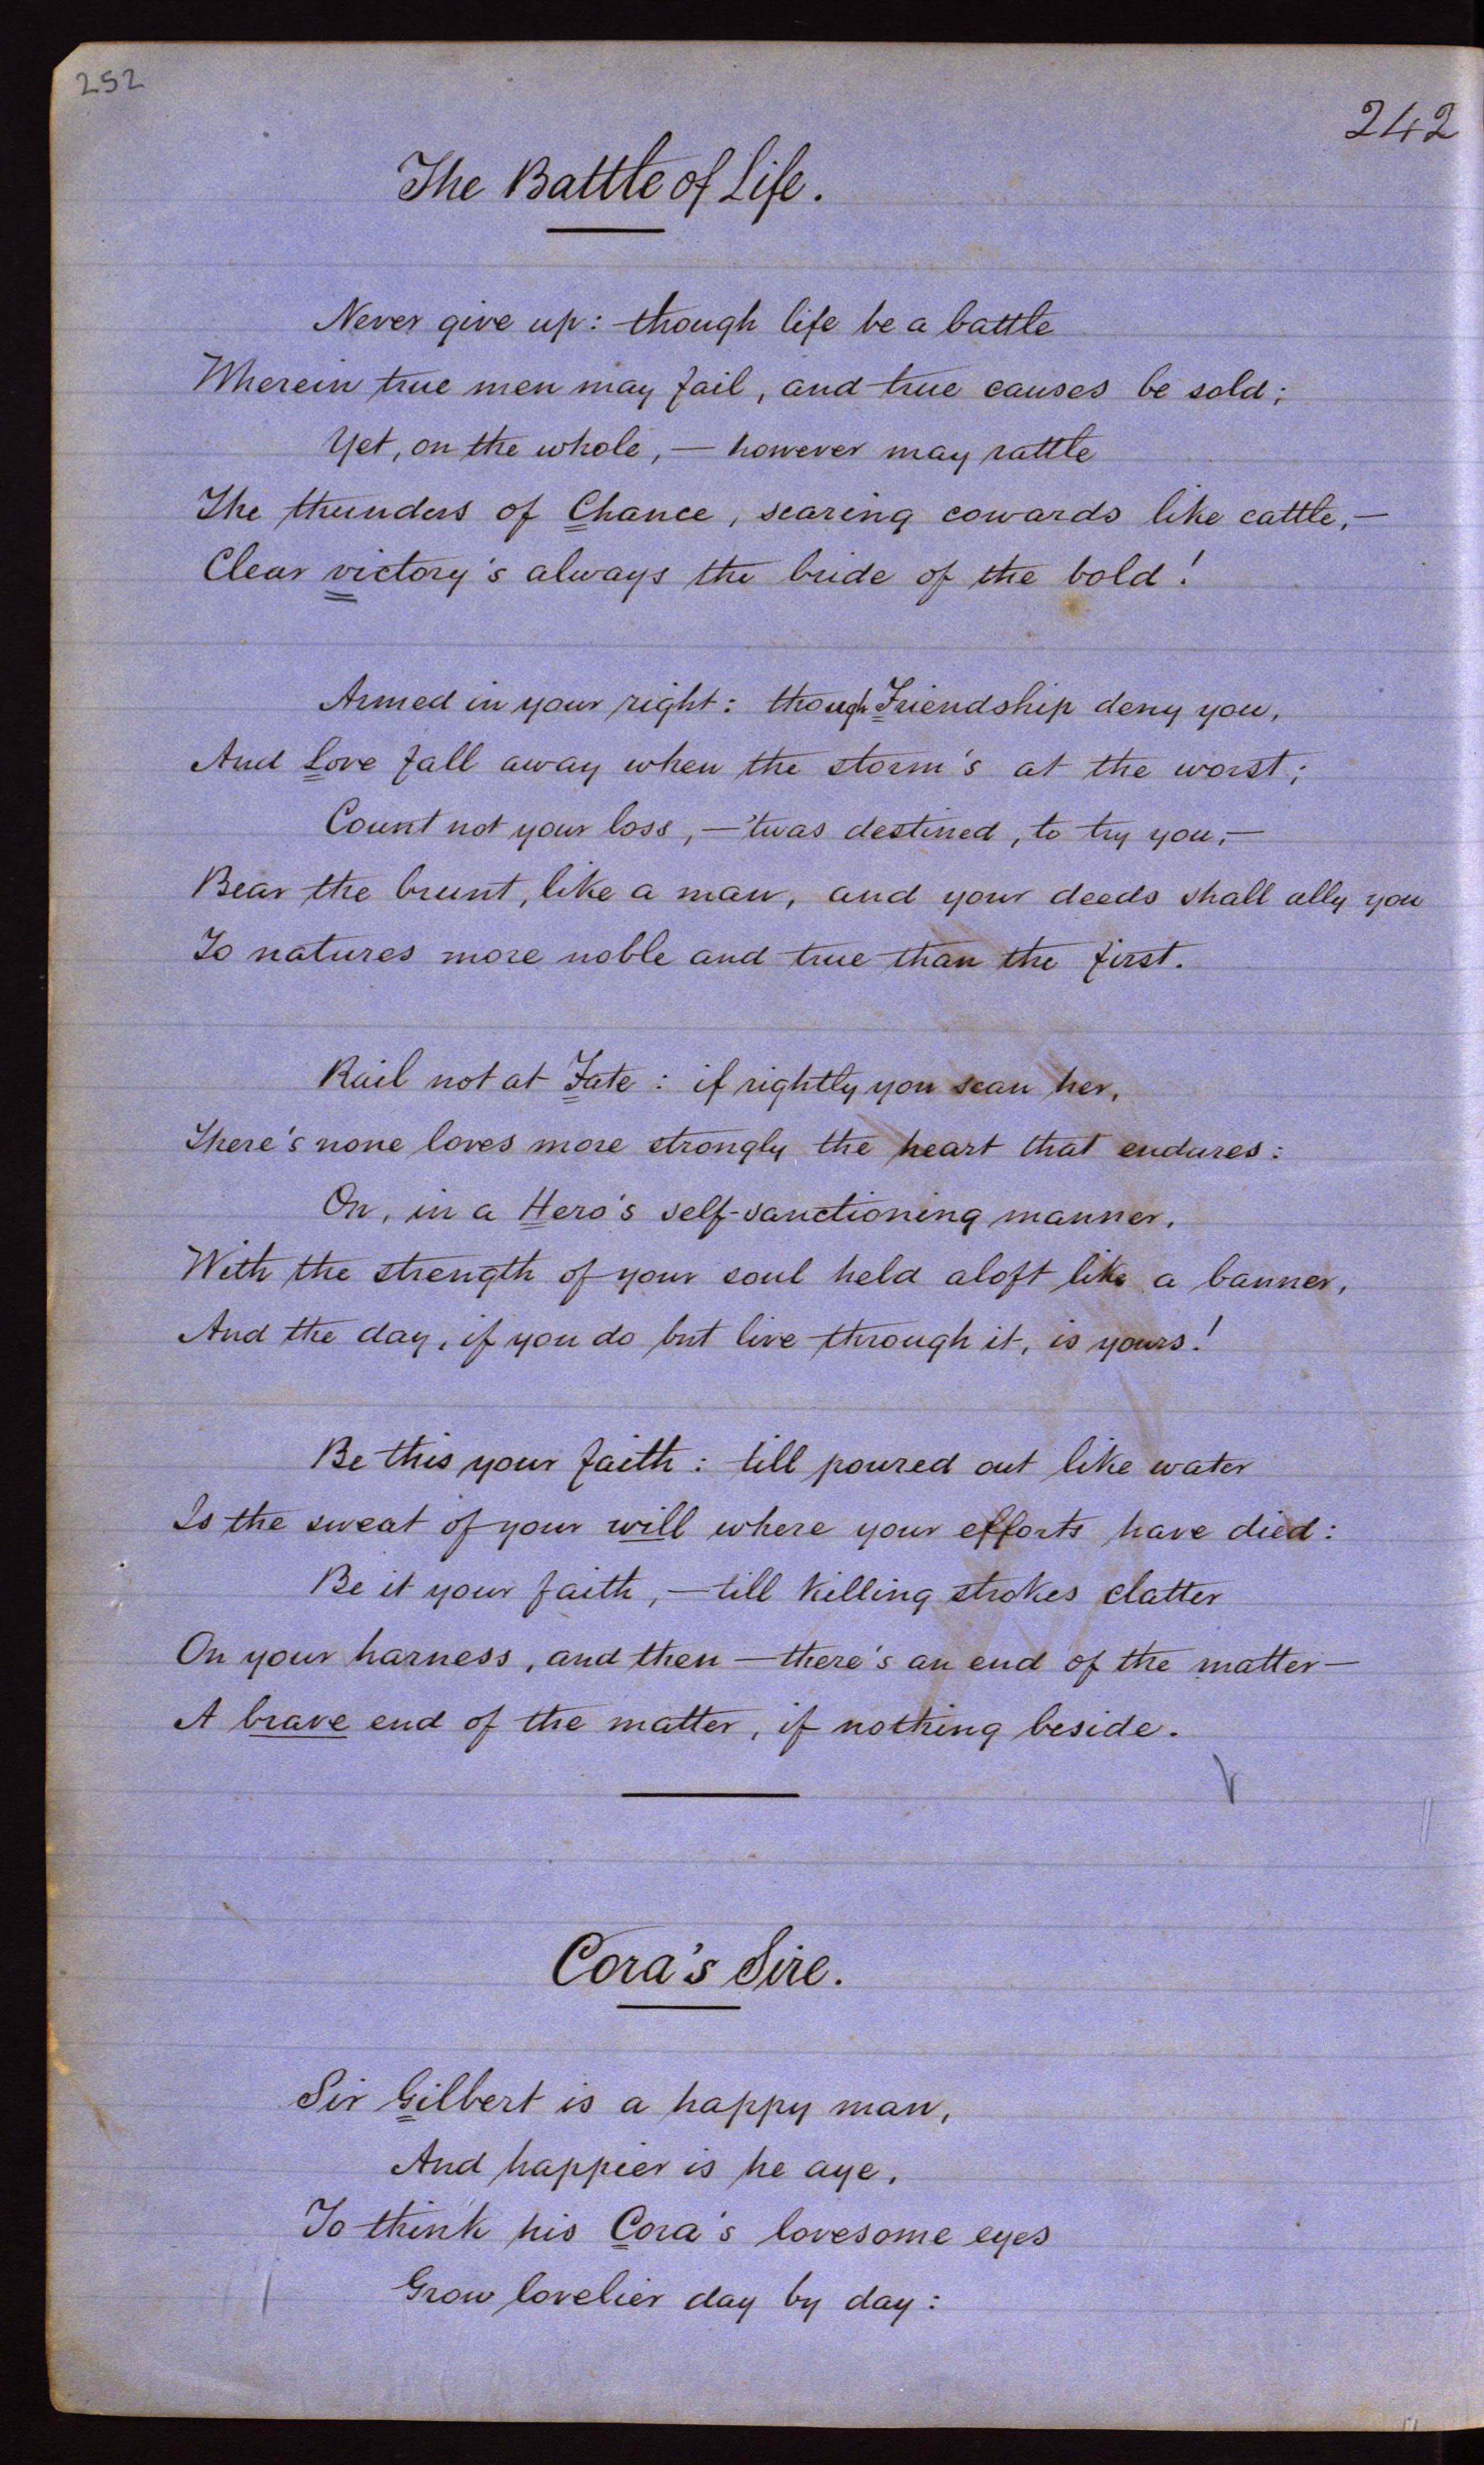 252
242
The Battle of Life.
Never give up: though life be a battle
Wherein true men may fail, and true causes be sold;
Yet, on the whole, — however may rattle
The thunders of Chance, scaring cowards like cattle, —
Clear victory's always the bride of the bold!
Armed in your right: though Friendship deny you,
And Love fall away when the storm's at the worst;
Count not your loss, — 'twas destined, to try you, —
Bear the brunt, like a man, and your deeds shall ally you
To natures more noble and true than the first.
Rail not at Fate: if rightly you scan her,
There's none loves more strongly the heart that endures:
On, in a Hero's self-sanctioning manner,
With the strength of your soul held aloft like a banner,
And the day, if you do but live through it, is yours!
Be this your faith: till poured out like water
Is the sweat of your will where your efforts have died:
Be it your faith, — till killing strokes clatter
On your harness, and then — there's an end of the matter —
A brave end of the matter, if nothing beside.
Cora's Sire.
Sir Gilbert is a happy man,
And happier is he aye,
To think his Cora's lovesome eyes
Grow lovelier day by day: